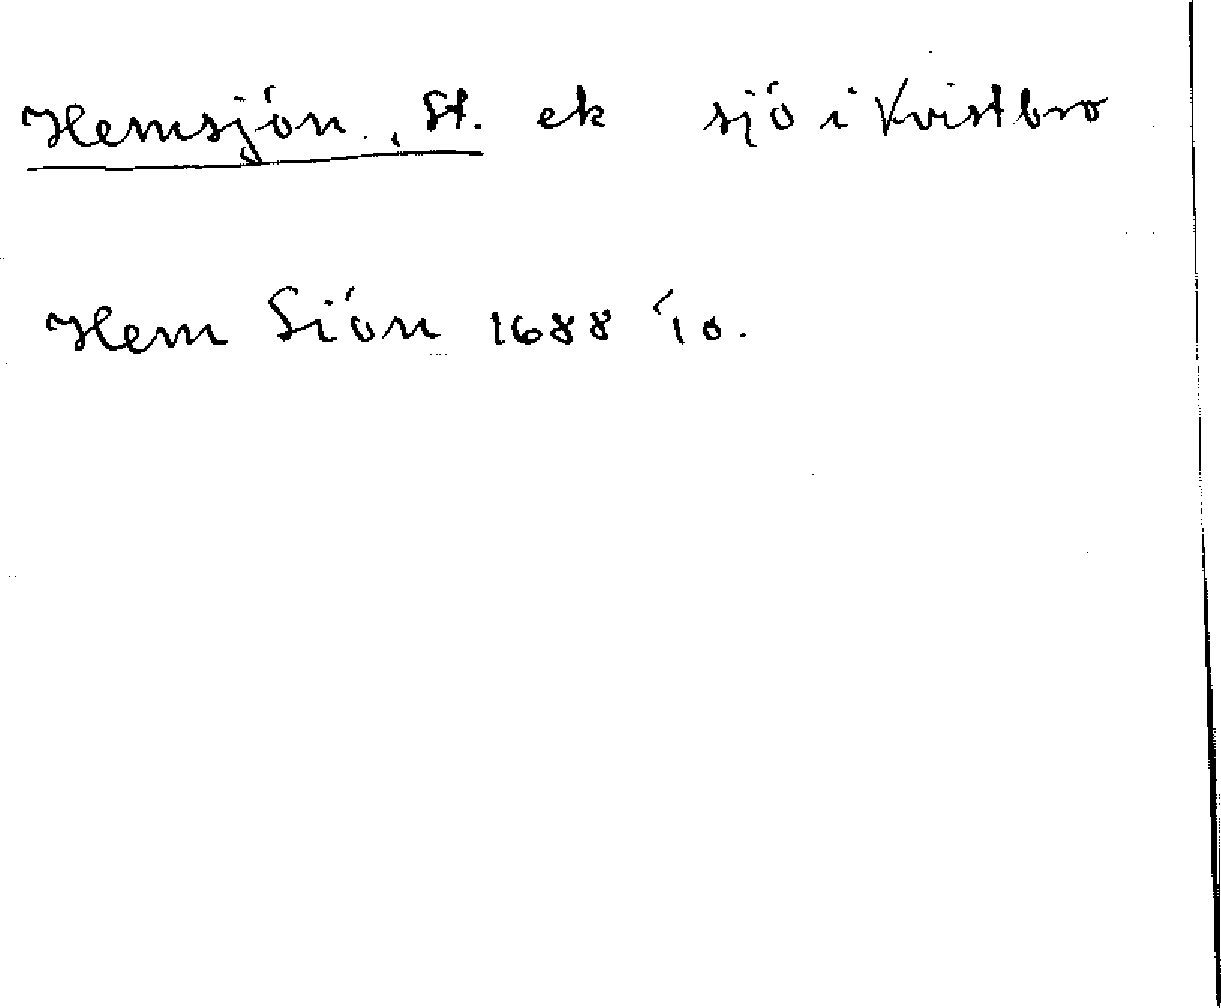 Hemsjön, St. ek sjö i Kvistbro
Hem Siön 1688 10.